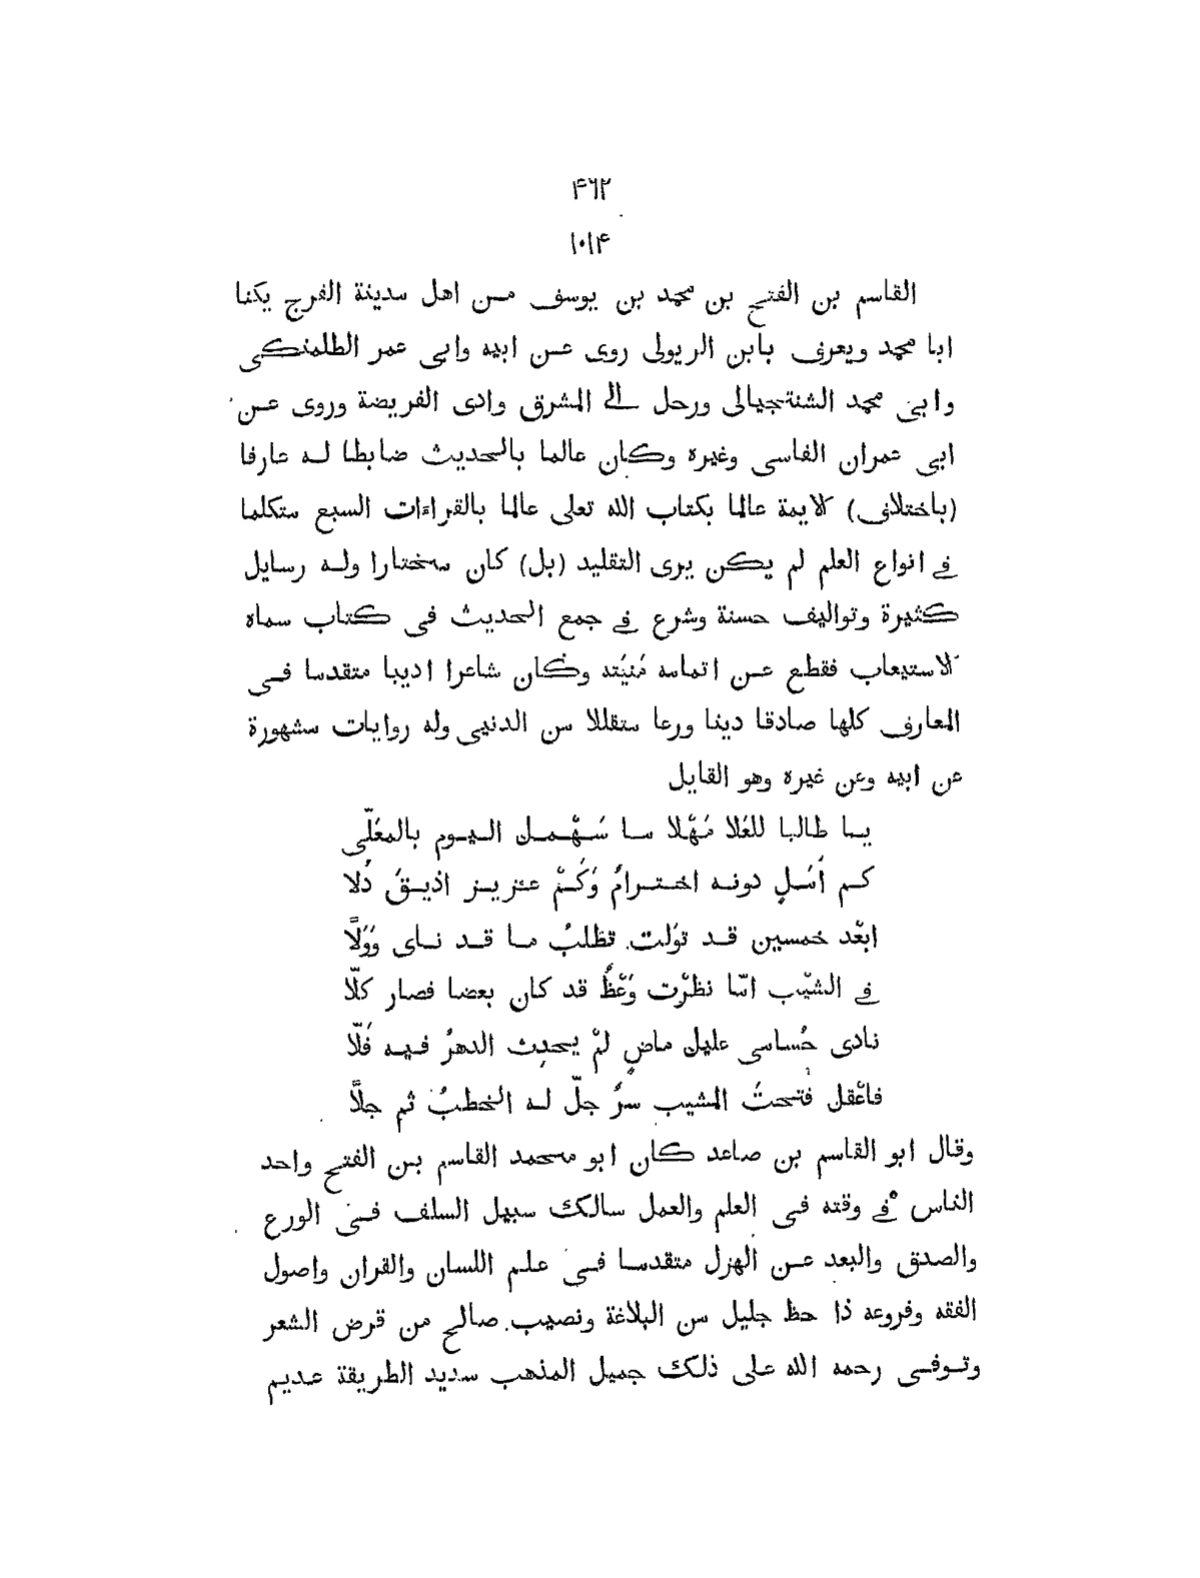 ۴۶۲
۱۰۱۴
القاسم بن الفتح بن محمد بن يوسف مـن اهل مدينة الفرج يكنا
ابا محمد ويعرف بابن الريولى روى عـن ابيه وابى عمر الطلمنكى
وابى محمد الشنتجيالى ورحل الى المشرق وادى الفريضة وروى عـن
ابى عمران الفاسى وغيره وكان عالما بالحديث ضابطا لـه عارفا
(باختلاف) الايمة عالما بكتاب الله تعلى عالما بالقراءات السبع متكلما
فى انواع العلم لم يكن يرى التقليد (بل) كان مختارا ولـه رسايل
كثيرة وتواليف حسنة وشرع فى جمع الحديث فى كتاب سماه
الاستيعاب فقطع عـن اتمامه مُنيَته وكان شاعرا اديبا متقدما فـى
المعارف كلها صادقا دينا ورعا متقللا من الدنيى وله روايات مشهورة
عن ابيه وعن غيره وهو القايل
يـا طالبا للعُلا مَهْلا مـا سَـهْـمـك اليـوم بالمعَلّى
كـم أمَلٍ دونـه اخـتـرامُ وَكَمْ عـزيـز اذيـقُ ذُلا
ابعْد خمسين قـد تولت تطلبُ مـا قـد نـاى وَوَلَّا
فى الشيْب امّا نظرْت وَعْظٌ قد كان بعضا فصار كلّا
نادى حُسامى عليل ماضٍ لمْ يحدِث الدهرُ فـيـه فَلّا
فاعْقل فتحتَ المشيب سرٌ جلّ لـه الخطبُ ثم جلاَّ
وقال ابو القاسم بن صاعد كان ابو محمد القاسم بـن الفتح واحد
الناس فى وقته فى العلم والعمل سالك سبيل السلف فـى الورع
والصدق والبعد عـن الهزل متقدمـا فـى علـم اللسان والقران واصول
الفقه وفروعه ذا حظ جليل من البلاغة ونصيب صالح من قرض الشعر
وتـوفـى رحمه الله علـى ذلك جميل المذهب سديد الطريقة عـديـم